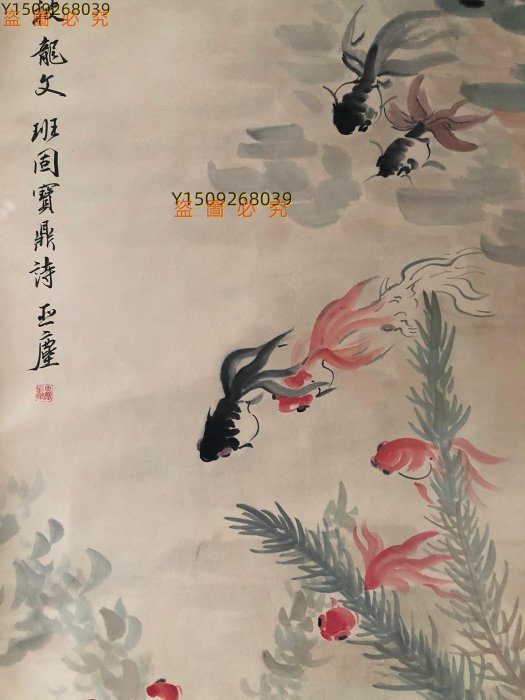 Y1509268039
盜圖必究
龍文 班固寶鼎詩 亞塵
Y1509268039
盜圖必究